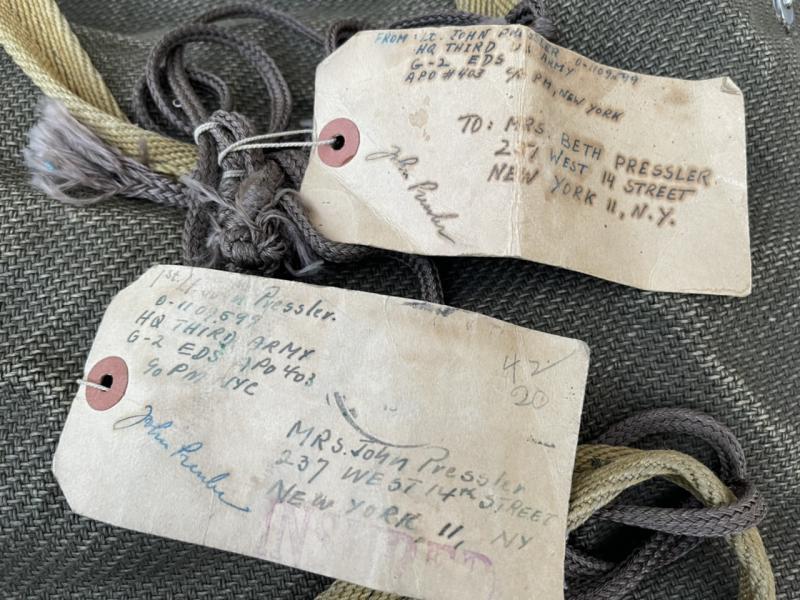 FROM: LT. JOHN PRESSLER
O-1109599
HQ THIRD US ARMY
G-2 EDS
APO #403 c/o PM, NEW YORK
TO: MRS. BETH PRESSLER
237 WEST 14 STREET
NEW YORK 11, N.Y.
John Pressler
1st Lt John Pressler.
O-1109599
HQ THIRD ARMY
G-2 EDS APO 403
c/o PM NYC
42
20
John Pressler
MRS. John Pressler
237 WEST 14th STREET
NEW YORK 11, NY